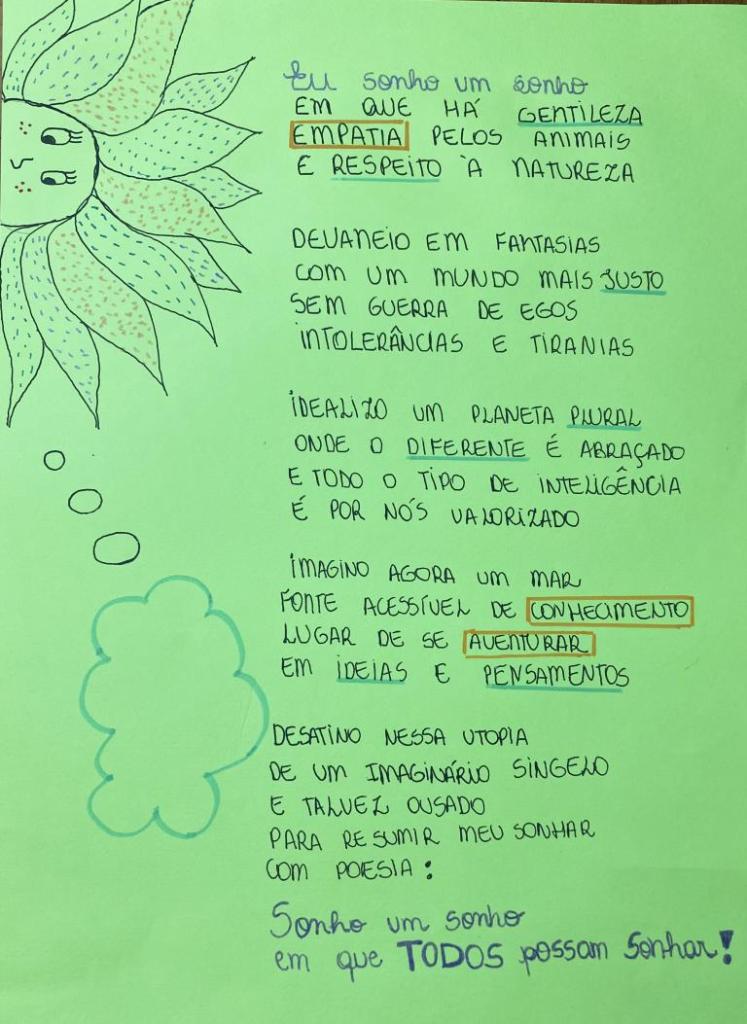 Eu sonho um sonho
EM QUE HÁ GENTILEZA
EMPATIA PELOS ANIMAIS
E RESPEITO À NATUREZA
DEVANEIO EM FANTASIAS
COM UM MUNDO MAIS JUSTO
SEM GUERRA DE EGOS
INTOLERÂNCIAS E TIRANIAS
IDEALIZO UM PLANETA PLURAL
ONDE O DIFERENTE É ABRAÇADO
E TODO O TIPO DE INTELIGÊNCIA
É POR NÓS VALORIZADO
IMAGINO AGORA UM MAR
FONTE ACESSÍVEL DE CONHECIMENTO
LUGAR DE SE AVENTURAR
EM IDEIAS E PENSAMENTOS
DESATINO NESSA UTOPIA
DE UM IMAGINÁRIO SINGELO
E TALVEZ OUSADO
PARA RESUMIR MEU SONHAR
COM POESIA:
Sonho um sonho
em que TODOS possam sonhar!